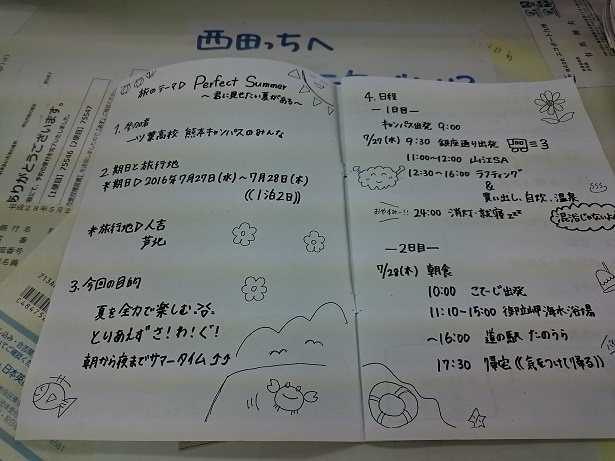 西田っちへ
旅のテーマ▷ Perfect Summer
～君に見せたい夏がある～
1. 参加者
一ツ葉高校 熊本キャンパスのみんな
2. 期日と旅行地
*期日▷2016年7月27日(水)～7月28日(木)
((1泊2日))
*旅行地▷人吉
芦北
3. 今回の目的
夏を全力で楽しむ
とりあえず さ！わ！ぐ！
朝から夜までサマータイム♪♪
4. 日程
―1日目―
キャンパス出発 9:00
7/27(水) 9:30 銀座通り出発
11:00～12:00 山江SA
12:30～16:00 ラフティング
&
買い出し、自炊、温泉
混浴じゃないよ
おやすみー!! 24:00 消灯・就寝 zzz
―2日目―
7/28(木) 朝食
10:00 こてーじ出発
11:10～15:00 御立岬海水浴場
～16:00 道の駅 たのうら
17:30 帰宅((気をつけて帰る))
ありがとうございます。
[1便目] 75546 [2便目] 75547
平成28年5